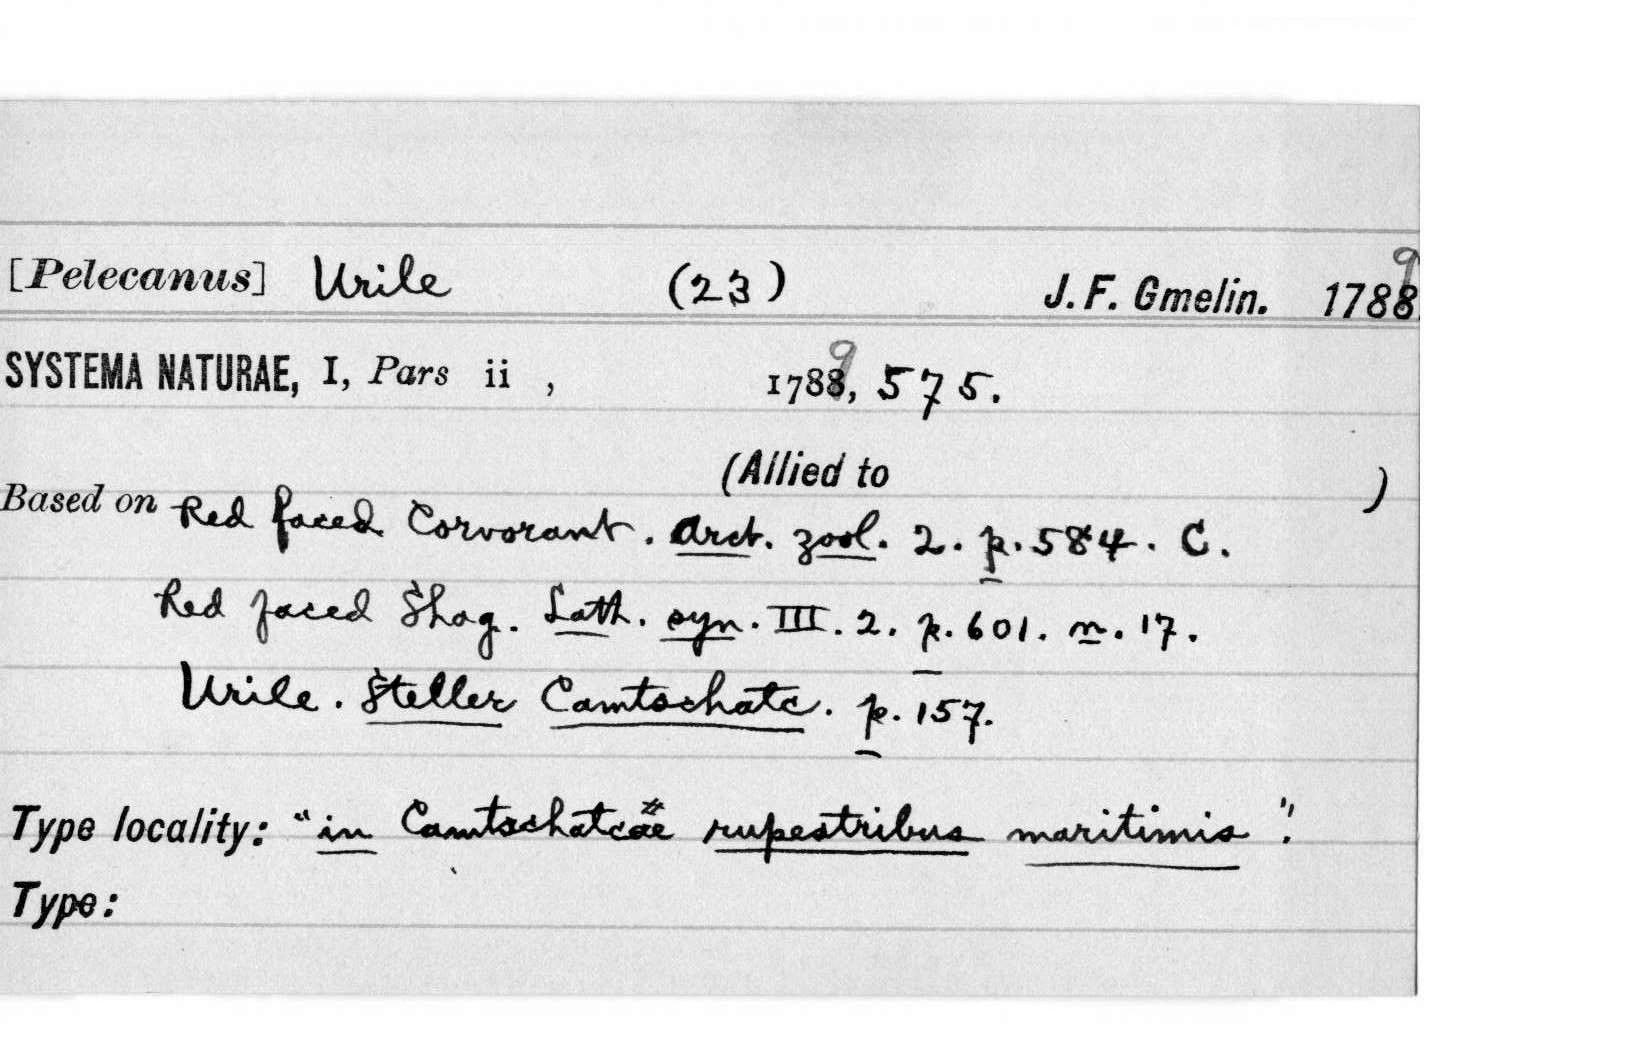 [Pelecanus] Urile (23) J. F. Gmelin. 1789
SYSTEMA NATURAE, I, Pars ii , 1789, 575.
(Allied to )
Based on Red faced Corvorant. Arct. zool. 2. p. 584. C.
Red faced Shag. Lath. syn. III. 2. p. 601. n. 17.
Urile. Steller Camtschatc. p. 157.
Type locality: "in Camtschatcae rupestribus maritimis".
Type: